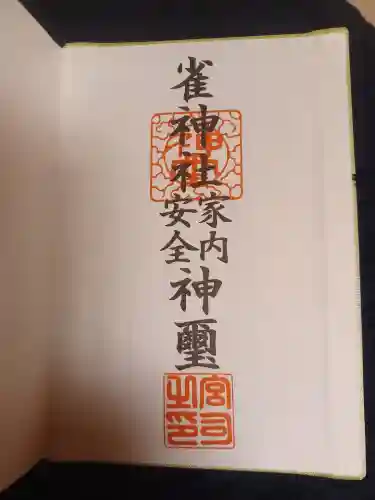 雀神社家内安全神璽
宮司之印